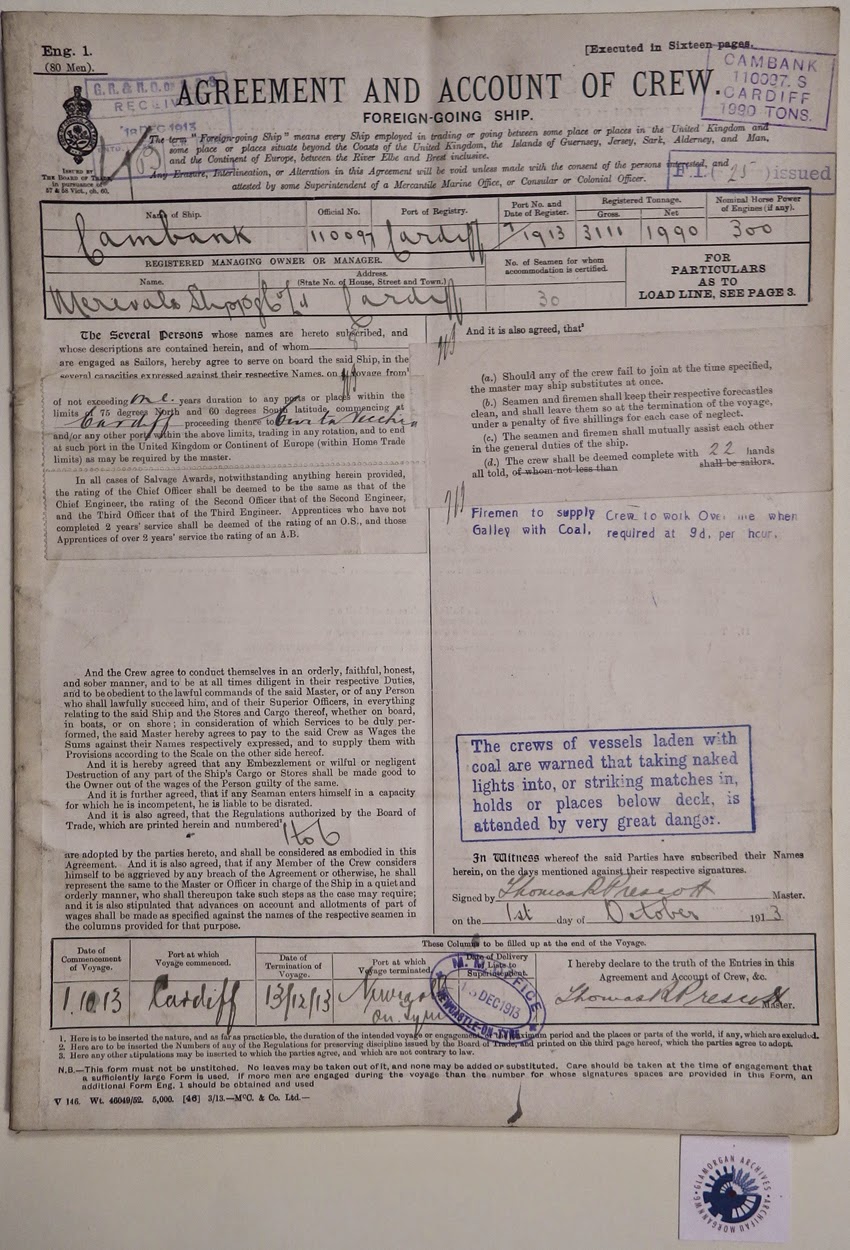 Eng. 1.
(80 Men).
[Executed in Sixteen pages.
CAMBANK
110097. S
CARDIFF
1990 TONS.
AGREEMENT AND ACCOUNT OF CREW.
FOREIGN-GOING SHIP.
The term "Foreign-going Ship" means every Ship employed in trading or going between some place or places in the United Kingdom and
some place or places situate beyond the Coasts of the United Kingdom, the Islands of Guernsey, Jersey, Sark, Alderney, and Man,
and the Continent of Europe, between the River Elbe and Brest inclusive.
Any Erasure, Interlineation, or Alteration in this Agreement will be void unless made with the consent of the persons interested, and
attested by some Superintendent of a Mercantile Marine Office, or Consular or Colonial Officer.
ISSUED BY
THE BOARD OF TRADE
in pursuance of
57 & 58 Vict., ch. 60.
RECEIVED
DEC 1913
F.I. (-25-) issued
Name of Ship.
Official No.
Port of Registry.
Port No. and
Date of Register.
Registered Tonnage.
Gross.
Net
Nominal Horse Power
of Engines (if any).
Cambank
110097
Cardiff
1913
3111
1990
300
REGISTERED MANAGING OWNER OR MANAGER.
Name.
Address.
(State No. of House, Street and Town.)
No. of Seamen for whom
accommodation is certified.
FOR
PARTICULARS
AS TO
LOAD LINE, SEE PAGE 3.
Merevale Shippg Co Ld
Cardiff
30
The Several Persons whose names are hereto subscribed, and
whose descriptions are contained herein, and of whom
are engaged as Sailors, hereby agree to serve on board the said Ship, in the
several capacities expressed against their respective Names, on a Voyage from
of not exceeding one years duration to any ports or places within the
limits of 75 degrees North and 60 degrees South latitude, commencing at
Cardiff proceeding thence to Civita Vecchia
and/or any other port within the above limits, trading in any rotation, and to end
at such port in the United Kingdom or Continent of Europe (within Home Trade
limits) as may be required by the master.
In all cases of Salvage Awards, notwithstanding anything herein provided,
the rating of the Chief Officer shall be deemed to be the same as that of the
Chief Engineer, the rating of the Second Officer that of the Second Engineer,
and the Third Officer that of the Third Engineer. Apprentices who have not
completed 2 years' service shall be deemed of the rating of an O.S., and those
Apprentices of over 2 years' service the rating of an A.B.
And the Crew agree to conduct themselves in an orderly, faithful, honest,
and sober manner, and to be at all times diligent in their respective Duties,
and to be obedient to the lawful commands of the said Master, or of any Person
who shall lawfully succeed him, and of their Superior Officers, in everything
relating to the said Ship and the Stores and Cargo thereof, whether on board,
in boats, or on shore; in consideration of which Services to be duly per-
formed, the said Master hereby agrees to pay to the said Crew as Wages the
Sums against their Names respectively expressed, and to supply them with
Provisions according to the Scale on the other side hereof.
And it is hereby agreed that any Embezzlement or wilful or negligent
Destruction of any part of the Ship's Cargo or Stores shall be made good to
the Owner out of the wages of the Person guilty of the same.
And it is further agreed, that if any Seaman enters himself in a capacity
for which he is incompetent, he is liable to be disrated.
And it is also agreed, that the Regulations authorized by the Board of
Trade, which are printed herein and numbered² 1 to 6
are adopted by the parties hereto, and shall be considered as embodied in this
Agreement. And it is also agreed, that if any Member of the Crew considers
himself to be aggrieved by any breach of the Agreement or otherwise, he shall
represent the same to the Master or Officer in charge of the Ship in a quiet and
orderly manner, who shall thereupon take such steps as the case may require;
and it is also stipulated that advances on account and allotments of part of
wages shall be made as specified against the names of the respective seamen in
the columns provided for that purpose.
And it is also agreed, that³
(a.) Should any of the crew fail to join at the time specified,
the master may ship substitutes at once.
(b.) Seamen and firemen shall keep their respective forecastles
clean, and shall leave them so at the termination of the voyage,
under a penalty of five shillings for each case of neglect.
(c.) The seamen and firemen shall mutually assist each other
in the general duties of the ship.
(d.) The crew shall be deemed complete with 22 hands
all told, of whom not less than shall be sailors.
Firemen to supply
Galley with Coal.
Crew to work Over me when
required at 9d. per hour.
The crews of vessels laden with
coal are warned that taking naked
lights into, or striking matches in,
holds or places below deck, is
attended by very great danger.
In Witness whereof the said Parties have subscribed their Names
herein, on the days mentioned against their respective signatures.
Signed by Thomas R Prescott Master.
on the 1st day of October 1913
These Columns to be filled up at the end of the Voyage.
Date of
Commencement
of Voyage.
Port at which
Voyage commenced.
Date of
Termination of
Voyage.
Port at which
Voyage terminated.
Date of Delivery
of Lists to
Superintendent.
I hereby declare to the truth of the Entries in this
Agreement and Account of Crew, &c.
1.10.13
Cardiff
13/12/13
Newcastle
on Tyne
M. M. OFFICE
DEC 1913
NEWCASTLE-ON-TYNE
Thomas R Prescott
Master.
1. Here is to be inserted the nature, and as far as practicable, the duration of the intended voyage or engagement, maximum period and the places or parts of the world, if any, which are excluded.
2. Here are to be inserted the Numbers of any of the Regulations for preserving discipline issued by the Board of Trade, and printed on the third page hereof, which the parties agree to adopt.
3. Here any other stipulations may be inserted to which the parties agree, and which are not contrary to law.
N.B.—This form must not be unstitched. No leaves may be taken out of it, and none may be added or substituted. Care should be taken at the time of engagement that
a sufficiently large Form is used. If more men are engaged during the voyage than the number for whose signatures spaces are provided in this Form, an
additional Form Eng. 1 should be obtained and used
V 146. Wt. 46049/52. 5,000. [46] 3/13.—McC. & Co. Ltd.—
GLAMORGAN ARCHIVES
ARCHIFAU MORGANNWG